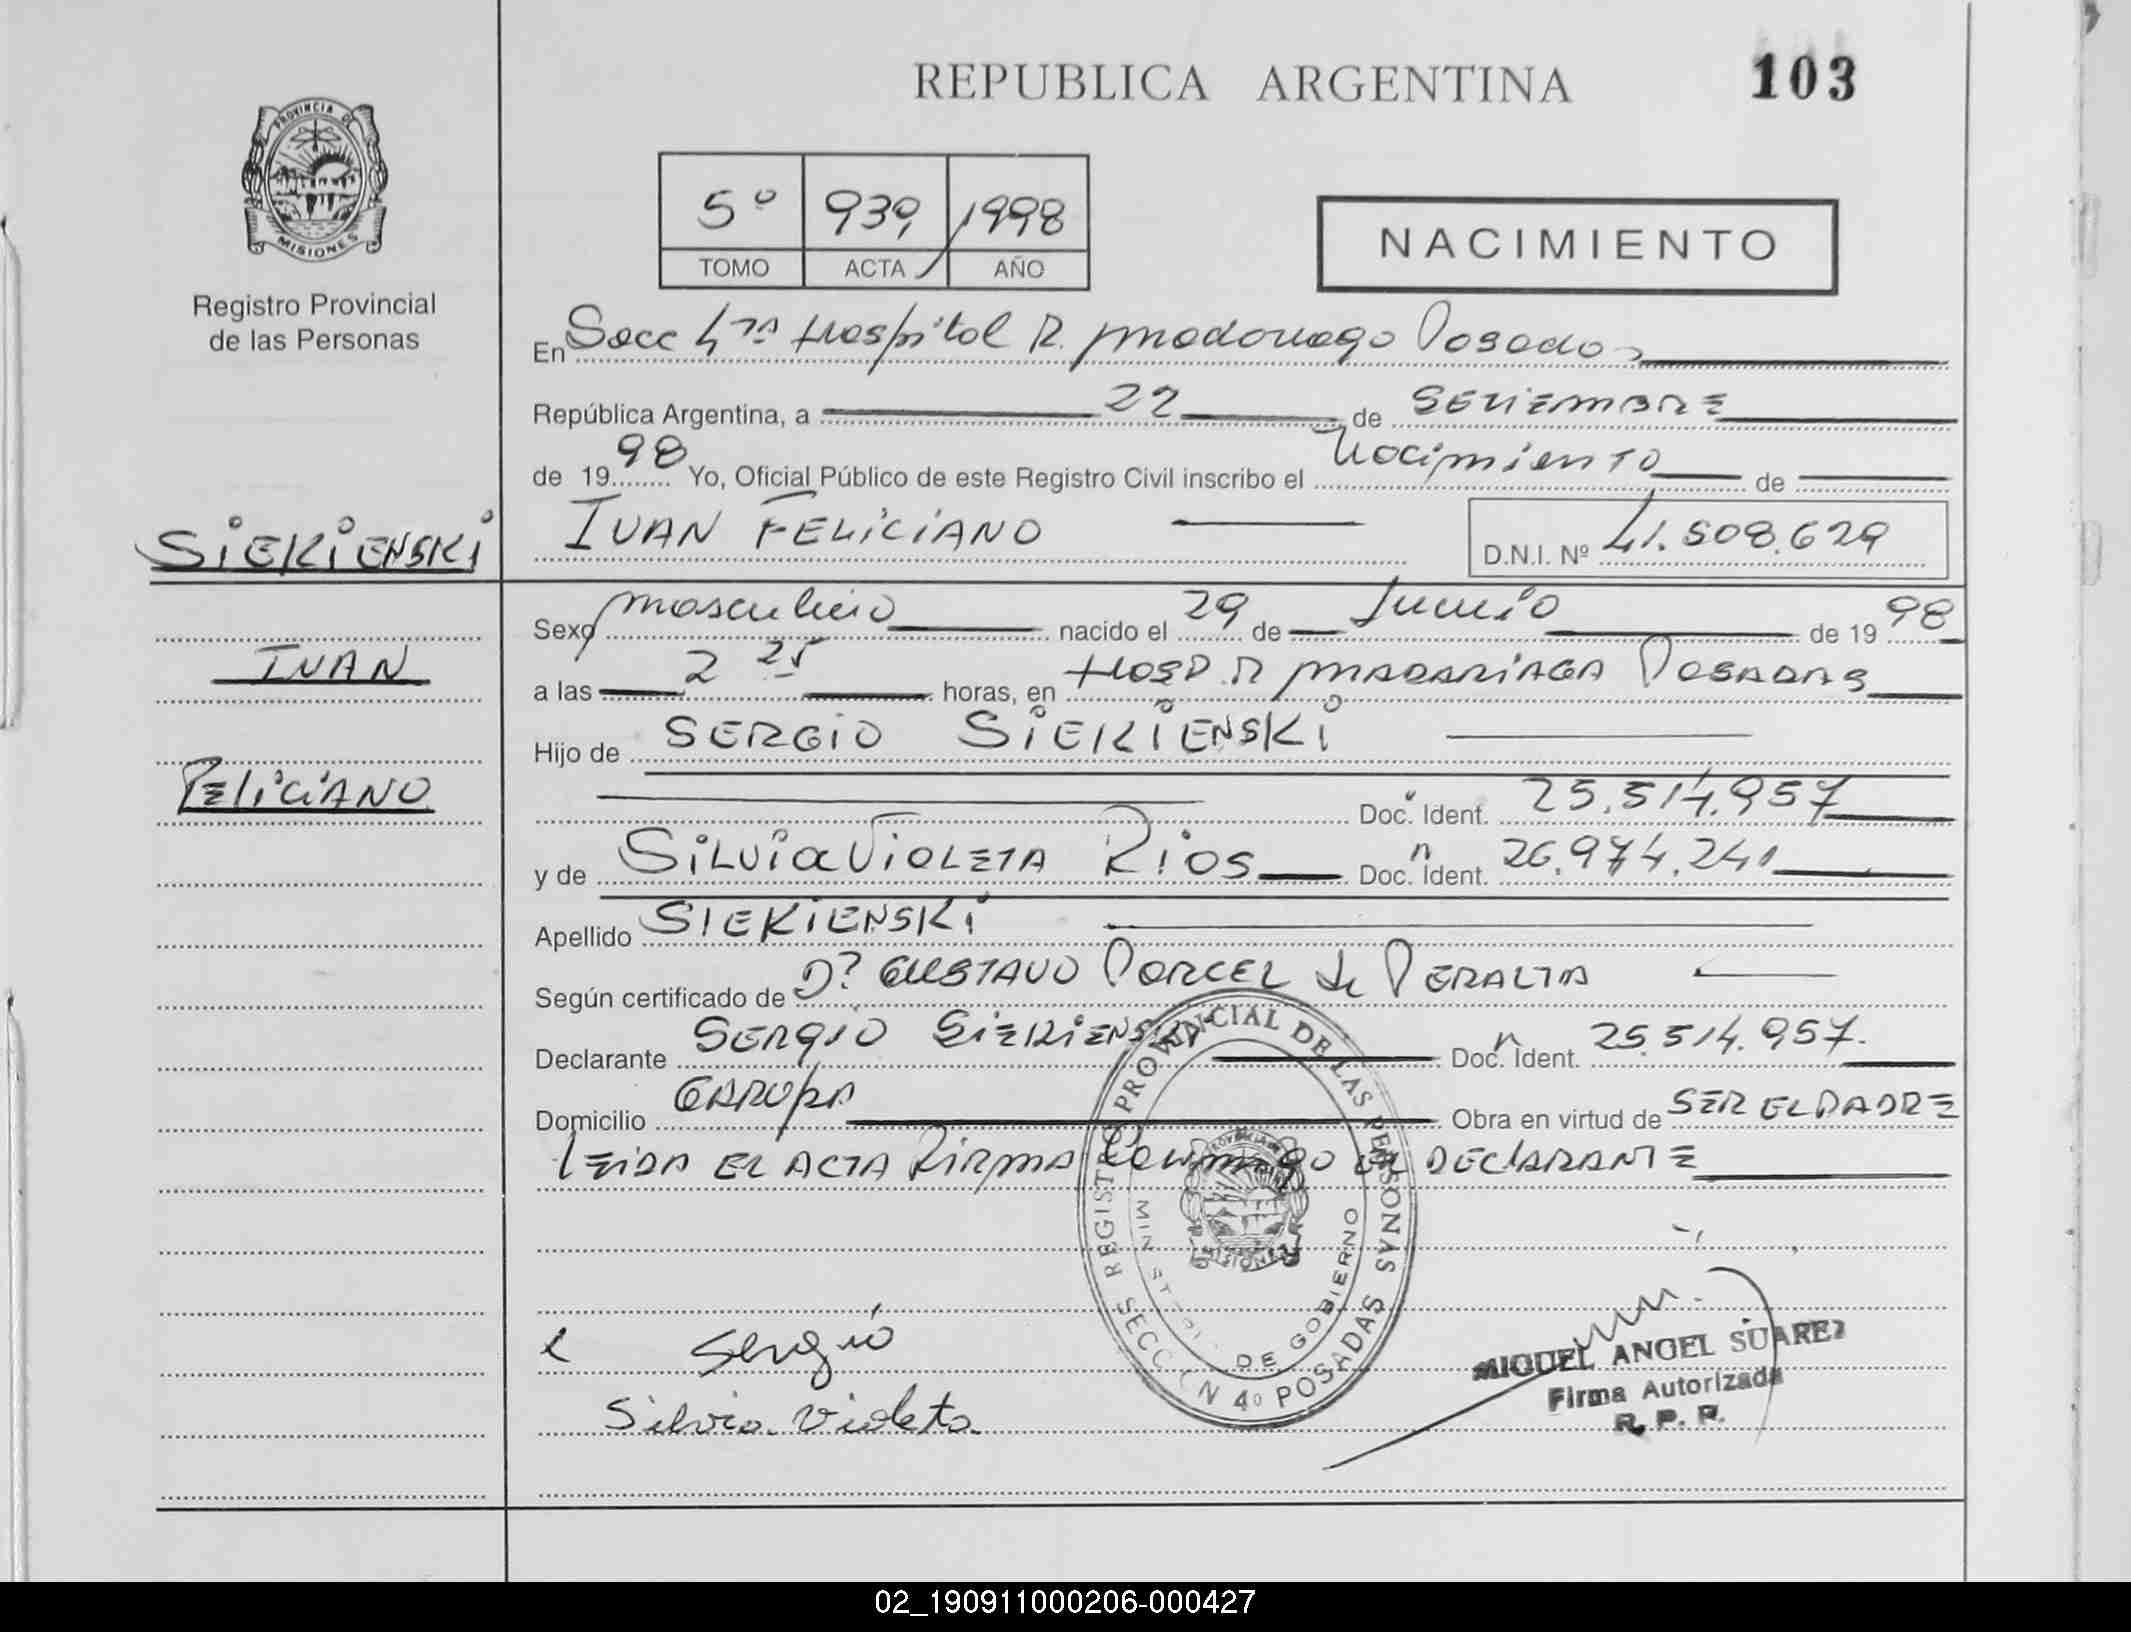 REPUBLICA ARGENTINA
103
PROVINCIA DE
MISIONES
Registro Provincial
de las Personas
5º 939 1998
TOMO ACTA AÑO
NACIMIENTO
En Secc 4ta Hospital R. Madariaga Posadas
República Argentina, a 22 de SETIEMBRE
de 1998 Yo, Oficial Público de este Registro Civil inscribo el Nacimiento de
SiEKiENSKi
IVAN FELiCiANO
D.N.I. Nº 41.508.629
Sexo masculino nacido el 29 de Junio de 1998
IVAN
a las 2 25 horas, en HOSP. R MADARiAGA POSADAS
Hijo de SERGiO SiEKiENSKi
FELiCiANO
Doc. Ident. 25.514.957
y de SiLViA ViOLETA RiOS Doc. Ident. 26.974.241
Apellido SIEKiENSKi
Según certificado de Dº GUSTAVO PORCEL de PERALTA
Declarante SERGiO SiEKiENSKi Doc. Ident. 25.514.957.
Domicilio GARUPA Obra en virtud de SER EL PADRE
LEiDA EL ACTA FiRMA Conmigo EL DECLARANTE
REGISTRO PROVINCIAL DE LAS PERSONAS
DE GOBIERNO
PROVINCIA DE
MISIONES
SECCION 4º POSADAS
Sergio
Silvia Violeta
MIGUEL ANGEL SUAREZ
Firma Autorizada
R. P. P.
02_190911000206-000427